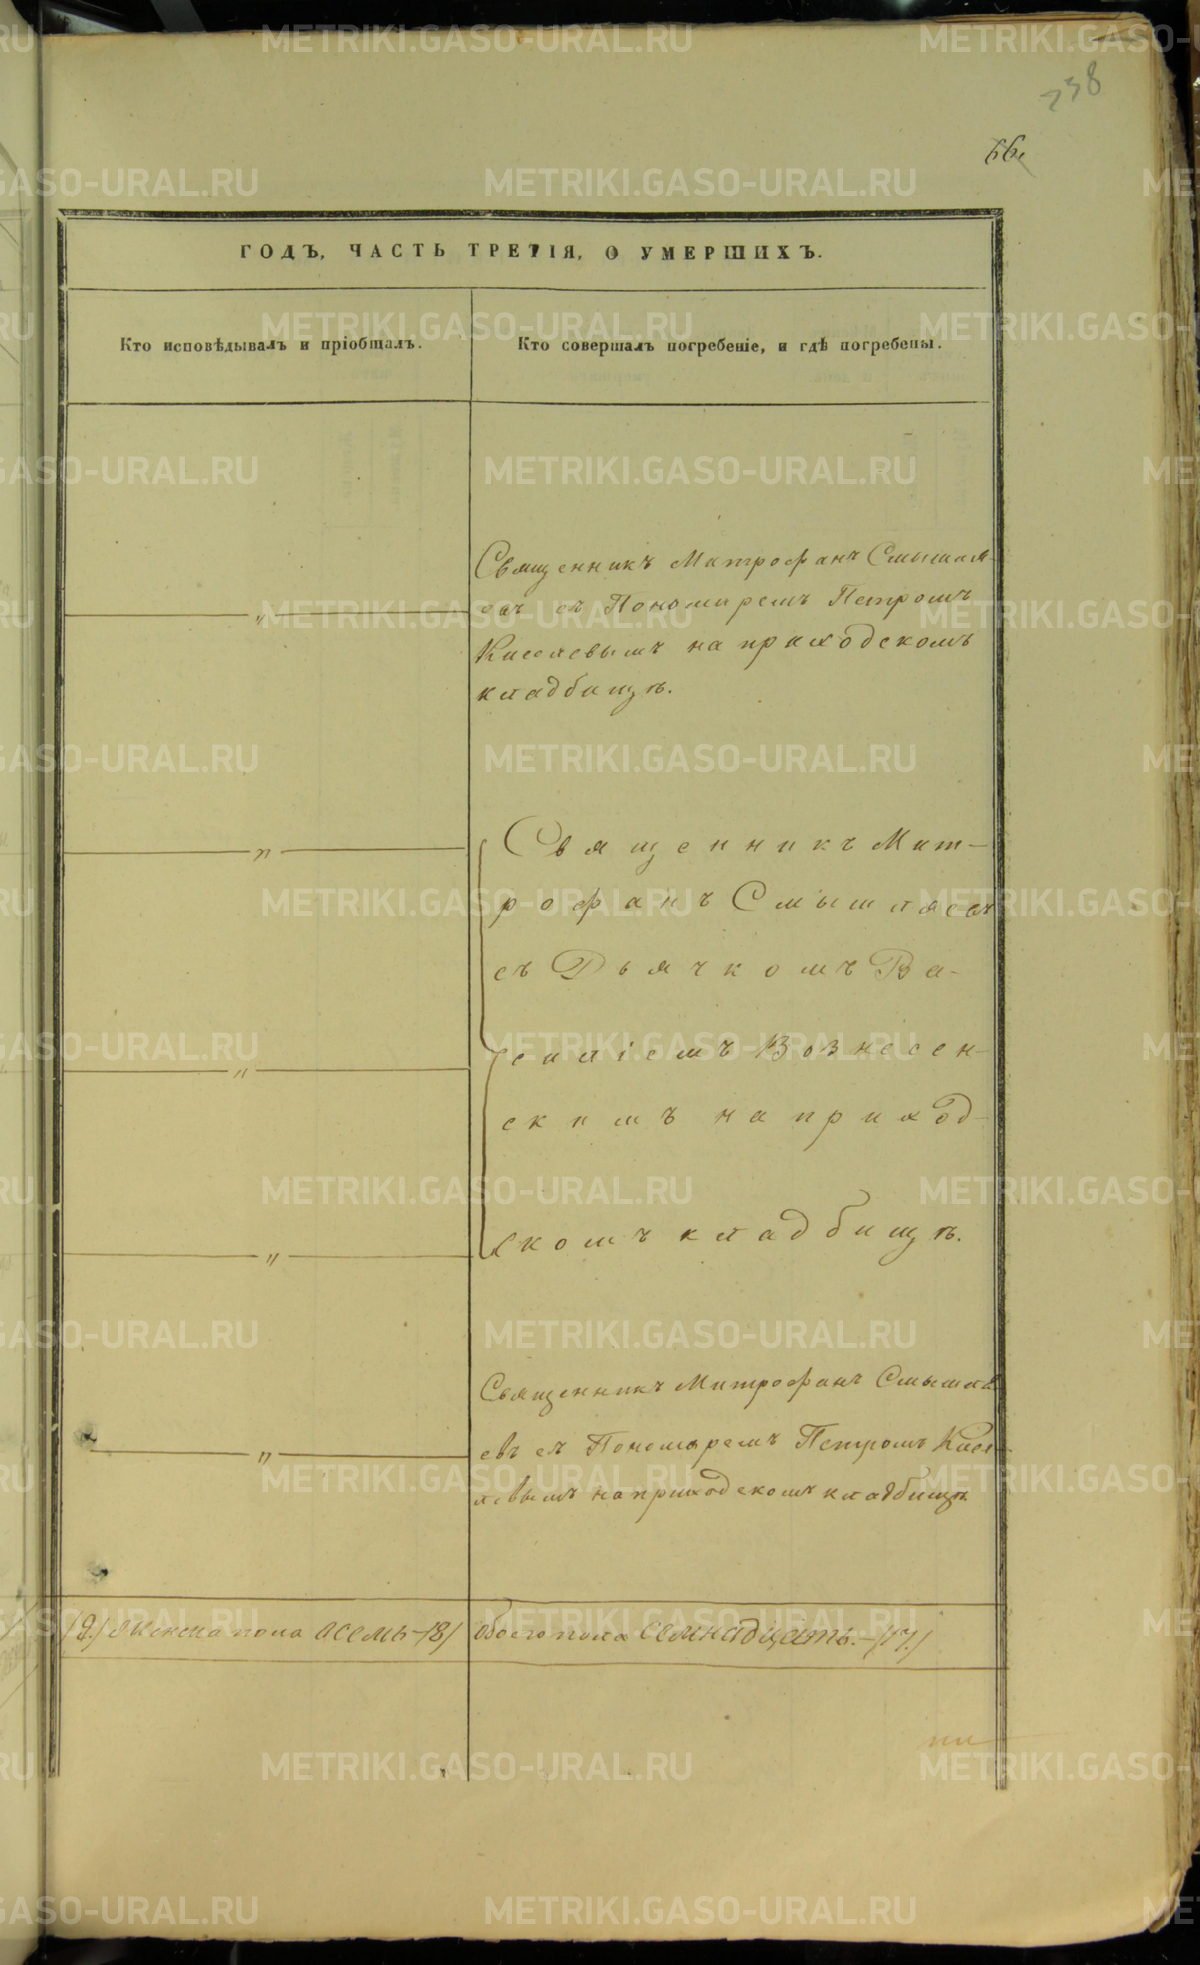 338
66.
ГОДЪ, ЧАСТЬ ТРЕТІЯ, О УМЕРШИХЪ.
Кто исповѣдывалъ и пріобщалъ.
Кто совершалъ погребеніе, и гдѣ погребены.
Священникъ Митрофанъ Смышля-
евъ съ Пономаремъ Петромъ
Киселевымъ на приходскомъ
кладбищѣ.
Священникъ Мит-
рофанъ Смышляевъ
съ Дьячкомъ Ва-
силіемъ Вознесен-
скимъ на приход-
скомъ кладбищѣ.
Священникъ Митрофанъ Смышля
евъ съ Пономаремъ Петромъ Кисе-
левымъ на приходскомъ кладбищѣ
(9.) женска пола осемь-(8)
обоего пола семнадцать.-(17)
METRIKI.GASO-URAL.RU